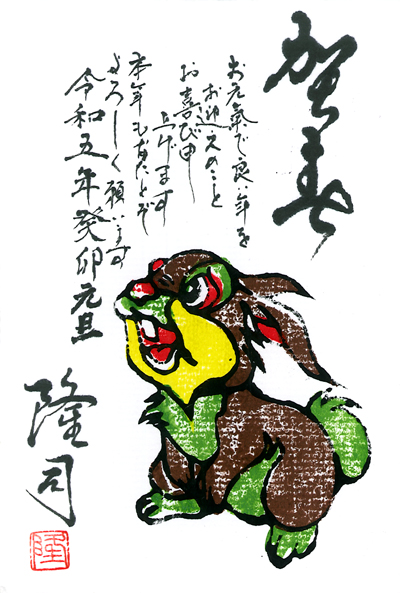 賀春
お元氣で良い年を
お迎えのこと
お喜び申
上げます
本年もなにとぞ
よろしく願います
令和五年癸卯元旦
隆司
隆